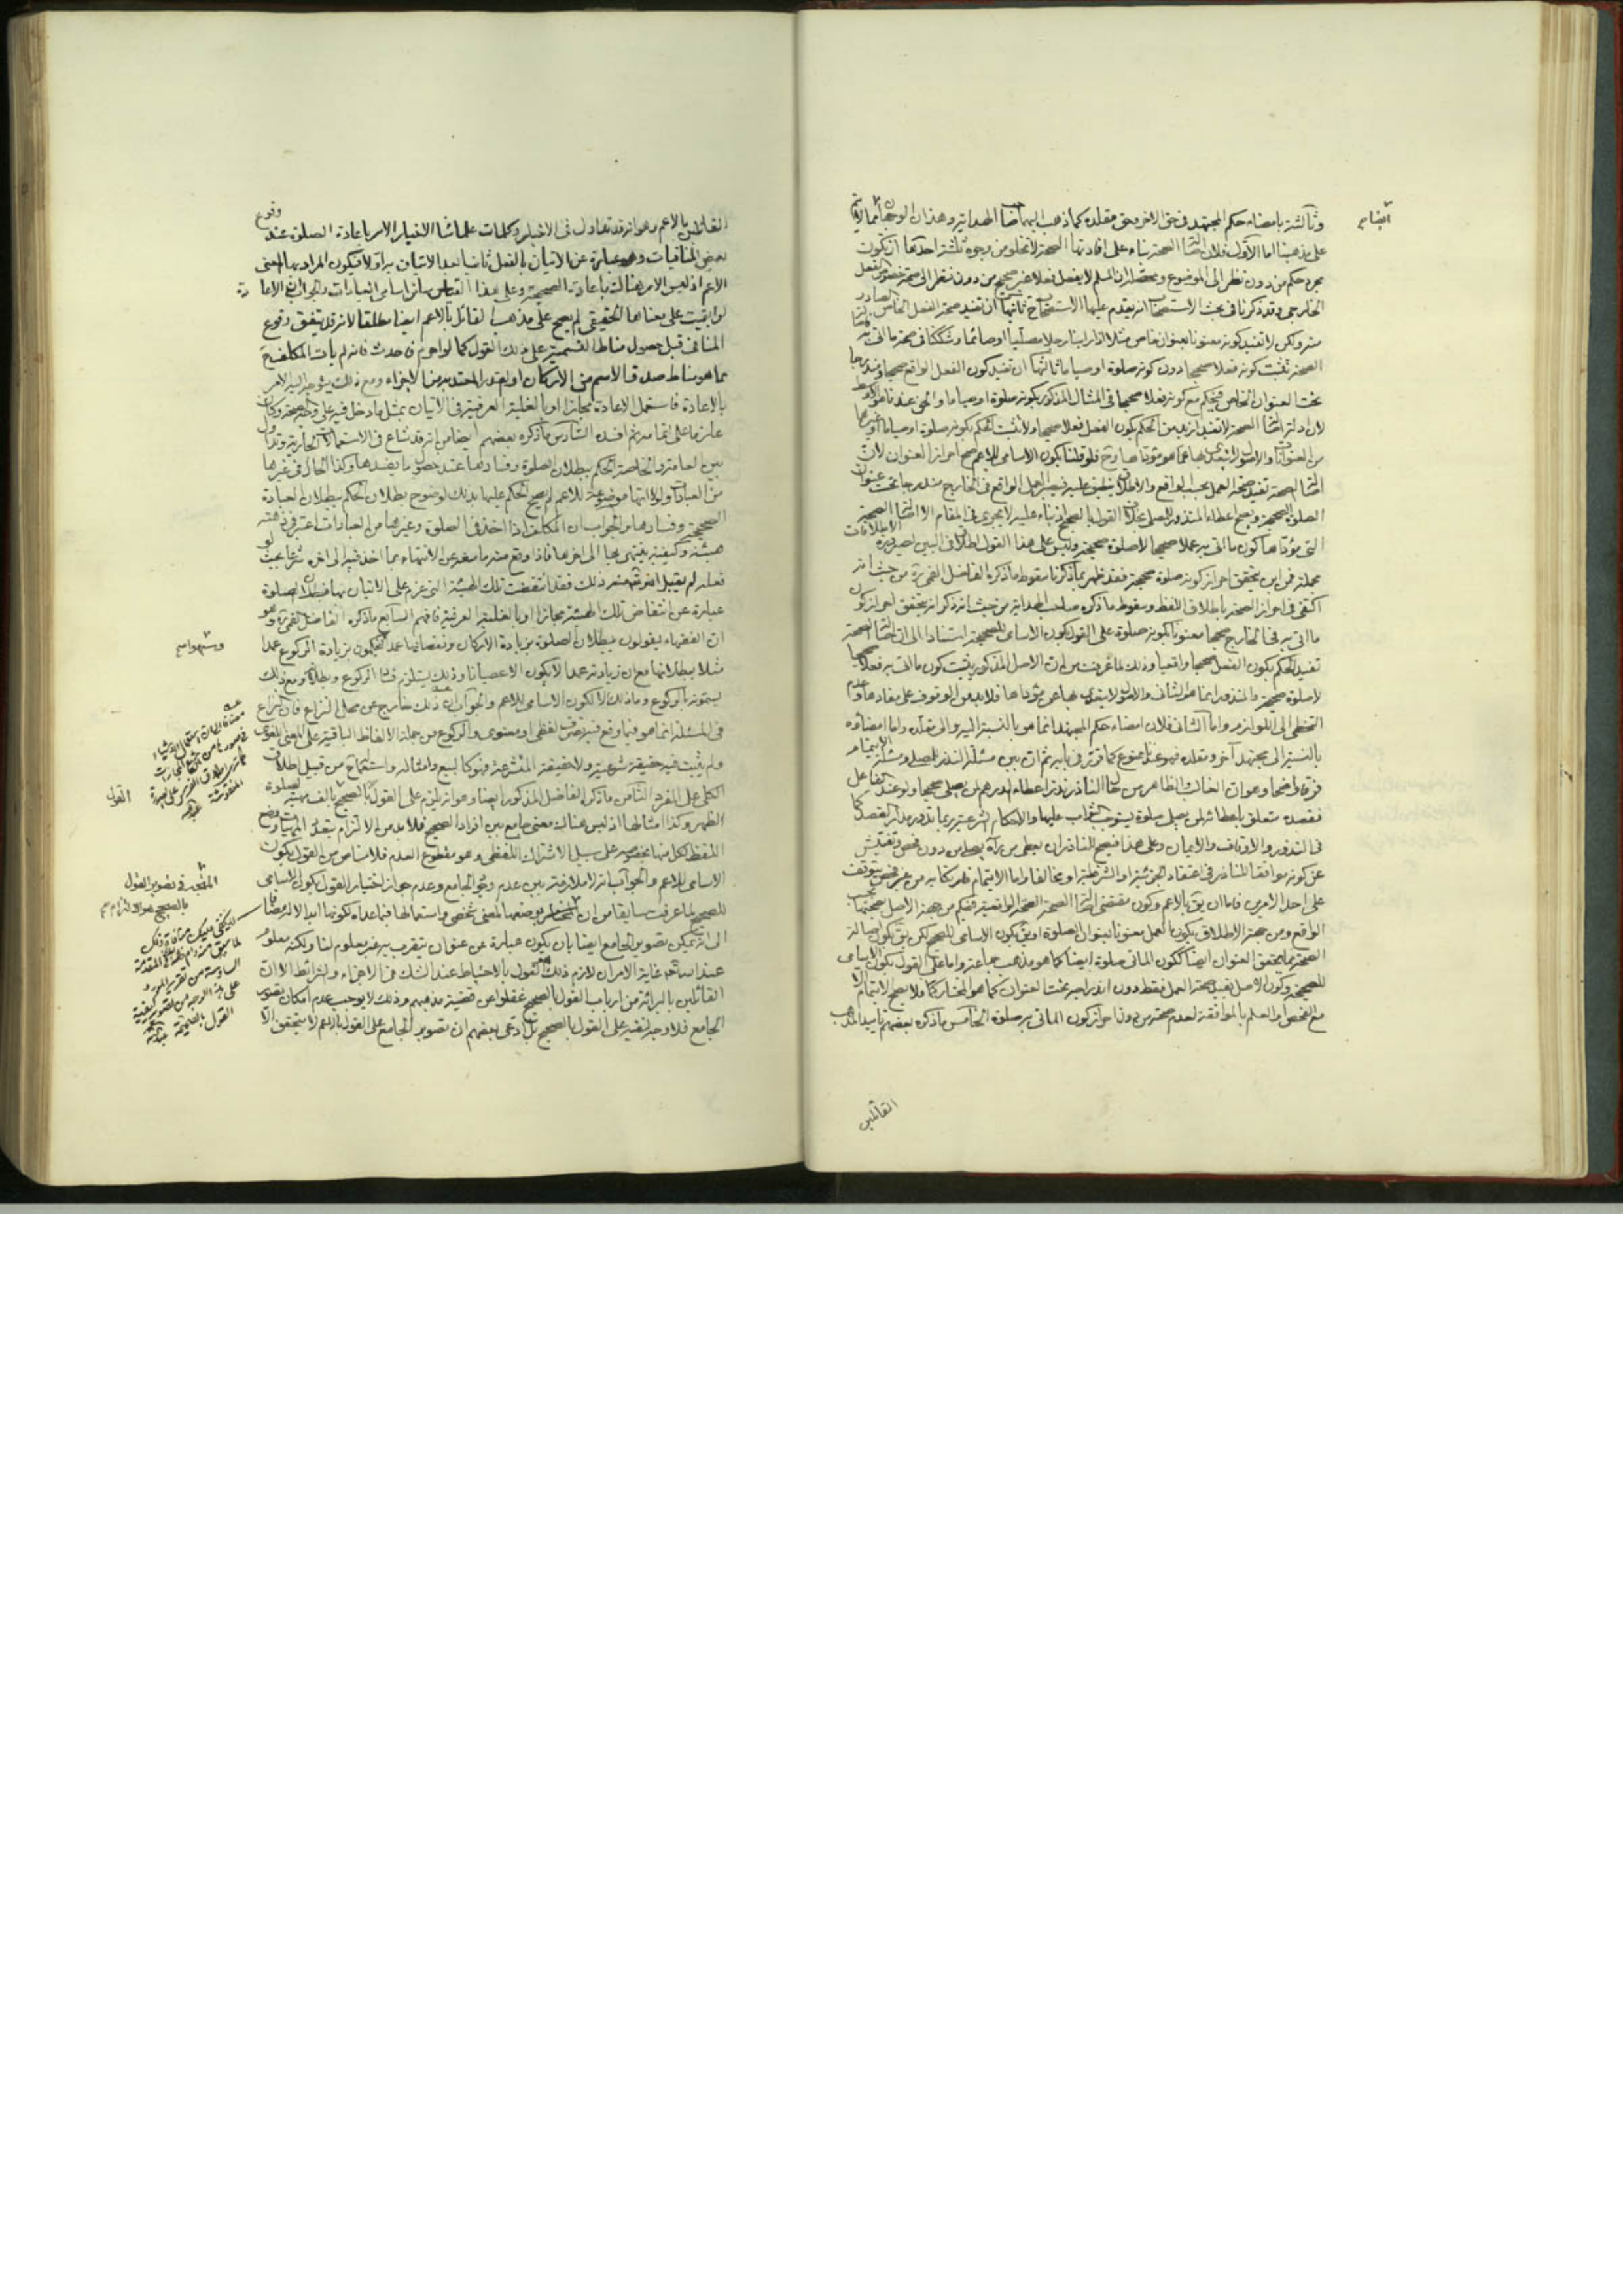 وثالثة بامضاء حكم المجتهد في حق الاخر وحق مقلده كما ذهب اليهما ايضا صاحب الهداية وهذان الوجهان
ايضا
على مذهبنا اما الاول فلان اصالة الصحة بناء على افادتها الصحة لا تخلو من وجوه ثلثة احدها ان يكون
مجرد حكم من دون نظر الى الموضوع ومحصله ان المسلم لا يفعل فعلا غير صحيح من دون نظر الى صحة خصوص الفعل
الخارجي وقد ذكرنا في بحث الاستصحاب انه يقدم عليها الاستصحاب ح ثانيها ان تفيد صحة الفعل الخاص الصادر
منه ولكن لا تفيد كونه معنونا بعنوان خاص مثلا اذا راينا رجلا مصليا او صائما وشككنا في صحة ما اتى به
الصحة تثبت كونه فعلا صحيحا دون كونه صلوة او صياما ثالثها ان تفيد كون الفعل الواقع صحيحا ومندرجا
تحت العنوان الخاص فيحكم مع كونه فعلا صحيحا في المثال المذكور بكونه صلوة او صياما والحق عندنا هو الاوسط
لان ادلة اصالة الصحة لا تفيد ازيد من الحكم بكون الفعل فعلا صحيحا ولا تثبت الحكم بكونه صلوة او صياما او غيرها
من العنوانات والاصول لا يتعدى بها عما هو مؤداها وح فلو قلنا بكون الاسامي للاعم صح احراز العنوان لان
اصالة الصحة تفيد صحة العمل بحسب الواقع والاطلاق ينطبق عليه فيصير العمل الواقع في الخارج مندرجا تحت عنوان
الصلوة الصحيحة ويصح اعطاء المنذور للمصلي بخلاف القول بالصحيح اذ بناء عليه لا يجري في المقام الا اصالة الصحة
التي مؤداها كون ما اتى به عملا صحيحا لا صلوة صحيحة وليس على هذا القول اطلاق في البين
فمن اين يتحقق احراز كونه صلوة صحيحة فقد ظهر بما ذكرنا سقوط ما ذكره الفاضل القمي ره من حيث انه
اكتفى في احراز الصحة باطلاق اللفظ وسقوط ما ذكره صاحب الهداية من حيث انه ذكر انه يتحقق احراز كون
ما اتى به في الخارج صحيحا معنونا بكونه صلوة على القول بكون الاسامي للصحيحة استنادا الى ان اصالة الصحة
تفيد الحكم بكون الفعل صحيحا واقعيا وذلك لما عرفت من ان الاصل المذكور يثبت كون ما اتى به فعلا صحيحا
لا صلوة صحيحة والمنذور انما هو الثاني والاصول لا يتعدى بها عن مؤداها فلا بد من الوقوف على مفادها وعدم
التخطي الى اللوازم واما الثاني فلان امضاء حكم المجتهد انما هو بالنسبة اليه والى مقلده واما امضاؤه
بالنسبة الى مجتهد آخر ومقلده فهو عندنا ممنوع كما قرر في بابه ثم ان بين مسئلة النذر للمصلي ومسئلة الايتمام
فرقا واضحا وهو ان الغالب الظاهر من حال الناذر نذرا اعطاء الدرهم لمن يصلي صحيحا ولو عند الفاعل
فقصده متعلق باعطائه لمن يصلي صلوة يستوجب الثواب عليها والاحكام الشرعية ربما تدور مدار القصد كما
في النذور والاوقاف والايمان وعلى هذا فيصح للناذر ان يعطي من يراه يصلي من دون فحص وتفتيش
عن كونه موافقا للناذر في اعتقاد الجزئية والشرطية او مخالفا واما الايتمام فارتكابه من غير فحص يتوقف
على احد الامرين فاما ان يق بالاعم وكون مقتضى اصالة الصحة الصحة الواقعية فيحكم من جهة الاصل صحتها بحسب
الواقع ومن جهة الاطلاق بكون العمل معنونا بعنوان الصلوة او يق بكون الاسامي للصحيح لكن يق بكون اصالة
الصحة مما يحقق العنوان ايضا ككون الماتي صلوة ايضا كما هو مذهب جماعة واما على القول بكون الاسامي
للصحيحة وكون الاصل يفيد صحة العمل فقط دون اندراجه تحت العنوان كما هو المختار فلا يصح الايتمام الا
مع الفحص او العلم بالموافقة لعدم احراز كون الماتي به صلوة الخامس ما ذكره بعضهم تاييدا لمذهب
القائلين
القائلين بالاعم وهو انه قد تداول في الاخبار وكلمات علمائنا الاخيار الامر باعادة الصلوة عند وقوع
بعض المنافيات وهي عبارة عن الاتيان بالفعل ثانيا بعد الاتيان به اولا فيكون المراد بها المعنى
الاعم اذ ليس الامر هنالك باعادة الصحيحة وعلى هذا القياس سائر اسامي العبادات والجواب ان الاعادة
لو ابقيت على معناها الحقيقي لم يصح على مذهب القائل بالاعم ايضا مطلقا لانه قد يتفق وقوع
المنافي قبل حصول مناط التسمية على ذلك القول كما لو احرم فاحدث فانه لم يات المكلف ح
بما هو مناط صدق الاسم من الاركان او القدر المعتد به من الاجزاء ومع ذلك يتوجه اليه الامر
بالاعادة فاستعمل الاعادة مجازا او بالغلبة العرفية في الاتيان بمثل ما دخل فيه على وجه الصحة وكان
عازما على اتمامه ثم افسده السادس ما ذكره بعضهم ايضا من انه قد شاع في الاستعمالات الجارية وتداول
بين العامة والخاصة الحكم ببطلان الصلوة وفسادها عند حصول ما يفسدها وكذا الحال في غيرها
من العبادات ولولا انها موضوعة للاعم لم يصح الحكم عليها بذلك لوضوح بطلان الحكم ببطلان العبادة
الصحيحة وفسادها والجواب ان المكلف اذا اخذ في الصلوة وغيرها من العبادات اعتبر في ذهنه
هيئة وكيفية ينتهي بها الى اخرها فاذا وقع منه ما منعه عن الانتهاء بما اخذ فيه الى اخره شرعا بحيث لو
فعله لم يقبل الشرع منه ذلك فقد انتقضت تلك الهيئة التي عزم على الاتيان بها فبطلان الصلوة
عبارة عن انتقاض تلك الهيئة مجازا او بالغلبة العرفية فافهم السابع ما ذكره الفاضل القمي ره وهو
ان الفقهاء يقولون ببطلان الصلوة بزيادة الاركان ونقصانها عمدا فيحكمون بزيادة الركوع عمدا
وسهوا
مثلا ببطلانها مع ان زيادته عمدا لا يكون الا عصيانا وذلك يستلزم فساد الركوع وبطلانه ومع ذلك
يسمونه بالركوع وما ذلك الا لكون الاسامي للاعم والجواب ان ذلك خارج عن محل النزاع فان النزاع
في المسئلة انما هو فيما وقع فيه تصرف لفظي او معنوي والركوع من جملة الالفاظ الباقية على المعنى اللغوي
ولم يثبت فيه حقيقة شرعية ولا حقيقة المتشرعة فهو كالبيع وامثاله واستعماله من قبيل اطلاق
الكلي على الفرد الثامن ما ذكره الفاضل المذكور ايضا وهو انه يلزم على القول بالصحيح بالف مهية لصلوة
الظهر وكذا امثالها اذ ليس هناك معنى جامع بين افراد الصحيح فلا بد من الالتزام بتعدد المهيات ووضع
اللفظ لكل منها بخصوصه على سبيل الاشتراك اللفظي وهو مقطوع العدم فلا مناص من القول بكون
الاسامي للاعم والجواب انه لا ملازمة بين عدم وجود الجامع وعدم جواز اختيار القول بكون الاسامي
للصحيح لما عرفت سابقا من ان بوضعها لمعنى شخصي واستعمالها فيما عداه لكونها ابدالا له مضافا
الى انه يمكن تصوير الجامع ايضا بان يكون عبارة عن عنوان يتقرب به غير معلوم لنا ولكنه معلوم
عند الله تع غاية الامر ان لازم ذلك القول بالاحتياط عند الشك في الاجزاء والشرائط الا ان
القائلين بالبرائة من ارباب القول بالصحيح غفلوا عن قضية مذهبهم وذلك لا يوجب عدم امكان تصوير
الجامع فلا وجه لنفيه على القول بالصحيح بل ادعى بعضهم ان تصوير الجامع على القول بالاعم لا يتحقق الا
القول